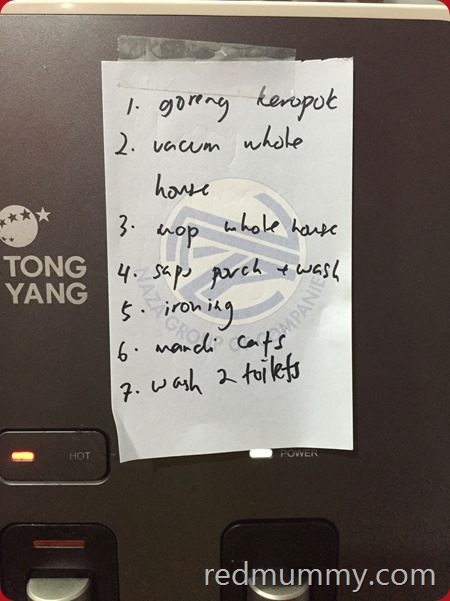 1. goreng keropok
2. vacum whole
house
3. mop whole house
4. sapu porch + wash
5. ironing
6. mandi cats
7. wash 2 toilets
TONG
YANG
NAZA GROUP OF COMPANIES
HOT
POWER
redmummy.com